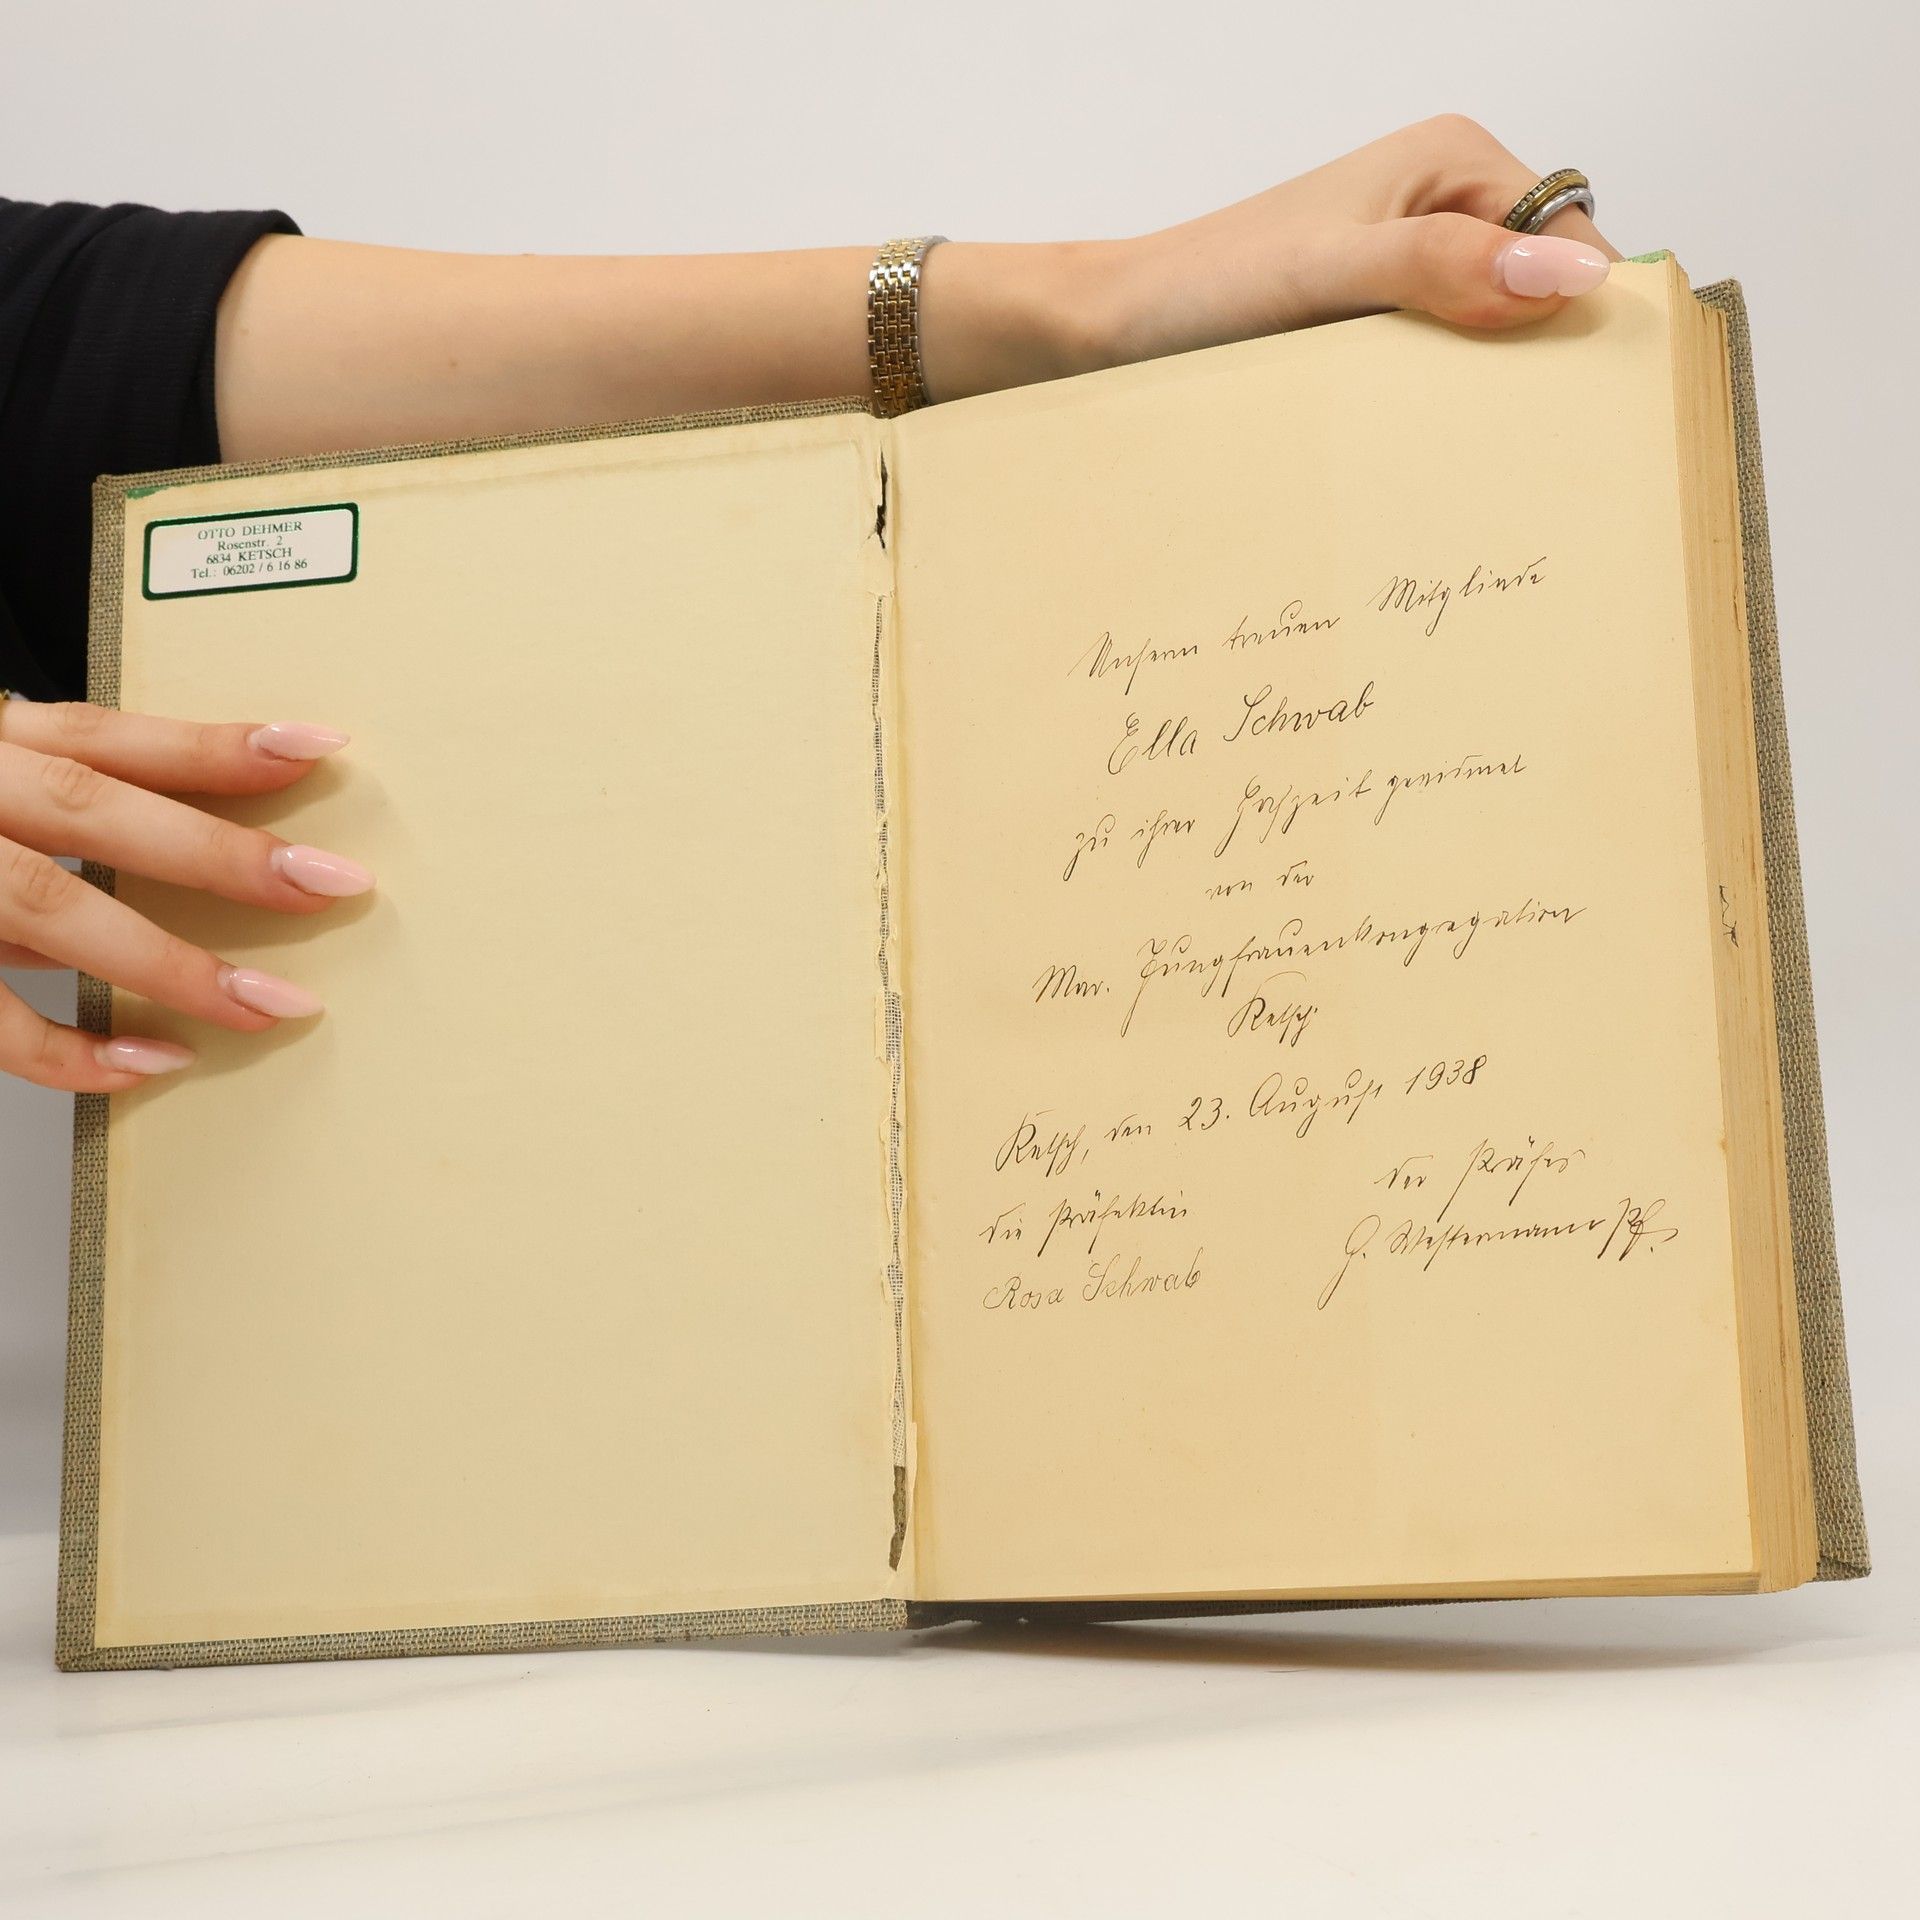 OTTO DEHMER
Rosenstr. 2
6834 KETSCH
Tel.: 06202 / 6 16 86
Unserm treuen Mitgliede
Ella Schwab
zu ihrer Hochzeit gewidmet
von der
Mar. Jungfrauenkongregation
Ketsch
Ketsch, den 23. August 1938
die Präfektin
Rosa Schwab
der Präses
G. Westermann Pf.